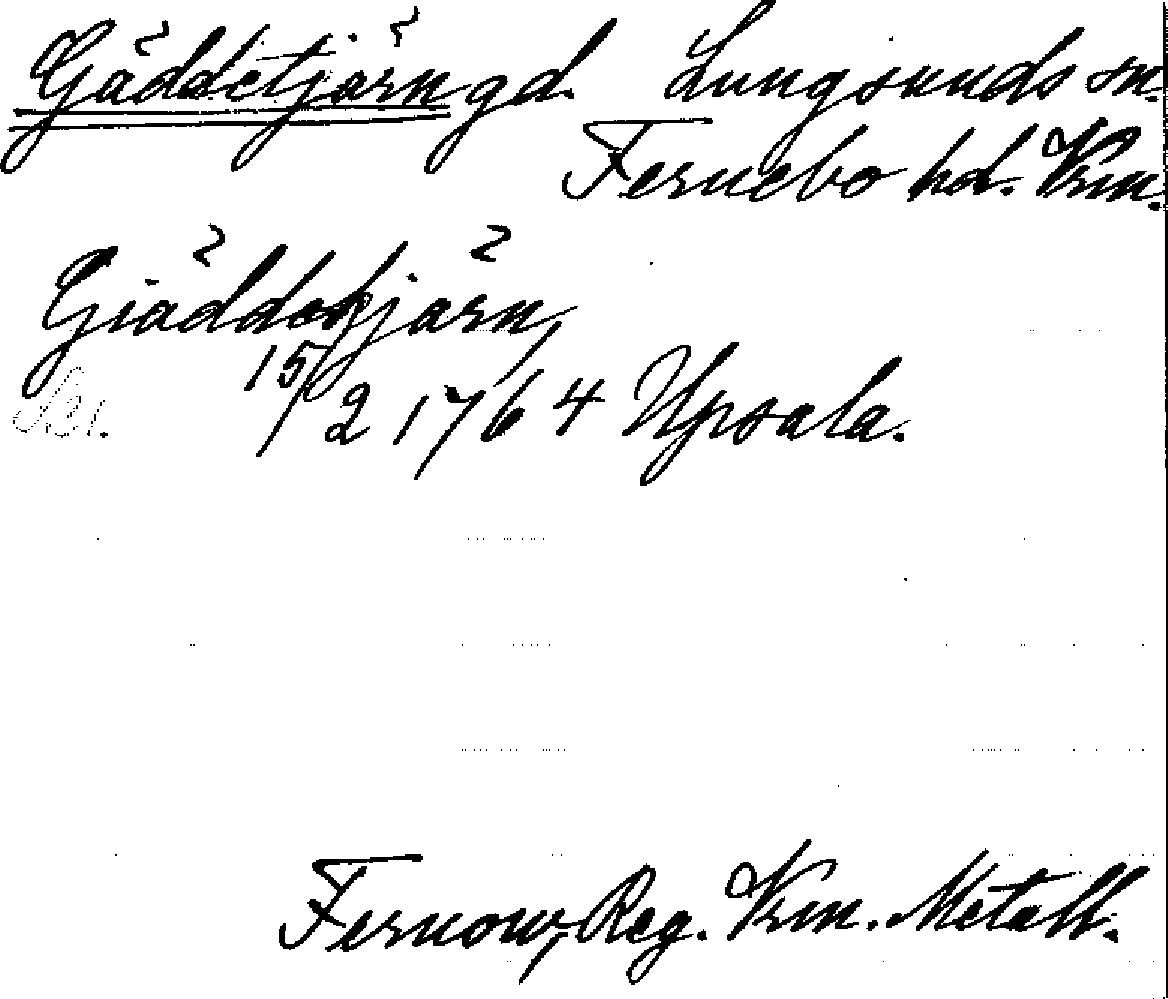 Gäddetjärn gd. Lungsunds sn.
Fernebo hd. Vrm.
Giäddetjärn,
15/2 1764 Upsala.
Fernow, Reg. Vrm. Metall.